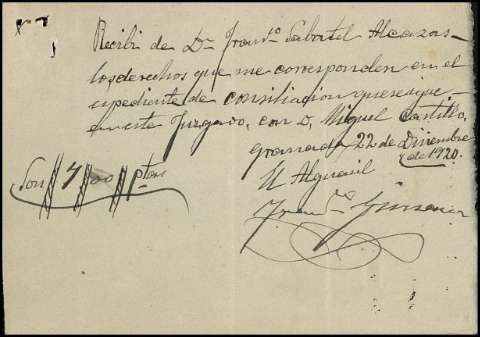 Recibi de Dn Franco Sabatel Alcazar
los derechos que me corresponden en el
espediente de consiliacion que se sigue
en este Juzgado, con D, Miguel Castillo,
Granada 22 de Diciembre
de 1920.
Son 4,00 ptas
El Alguacil
Franco Jimenez